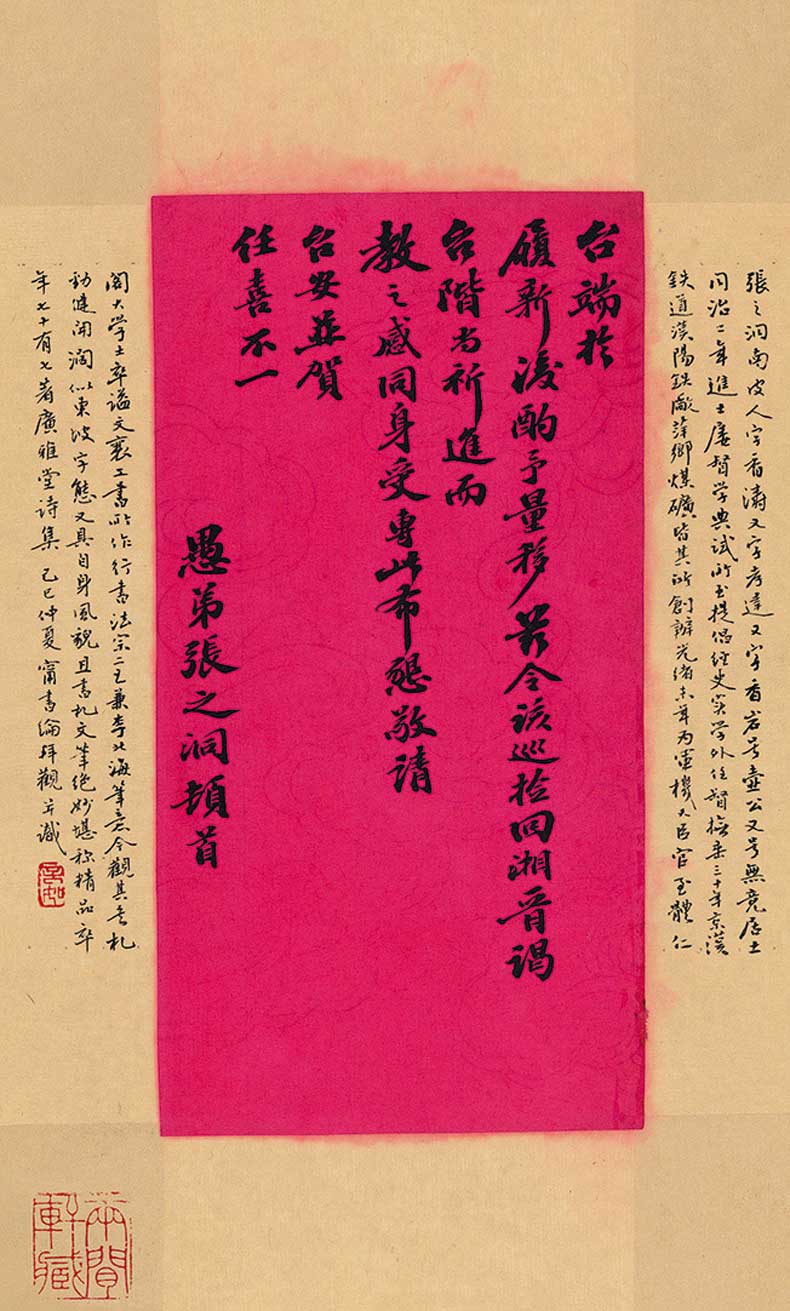 張之洞南皮人字香濤又字孝達又字香岩号壺公又号無竞居士
同治二年進士屡督学典試所至提倡经史实学外任督撫垂三十年京漢
鉄道漢陽鉄廠萍鄉煤礦皆其所創辦光绪末年为軍機大臣官至體仁
台端於
履新後酌予量移若令該巡捡回湘晉谒
台階尚祈進而
教之感同身受專此布懇敬请
台安並賀
任喜不一
愚弟張之洞頓首
阁大学士卒谥文襄工書所作行書法宗二王兼李北海筆意今觀其書札
劲健開濶似東坡字態又具自身風貌且書札文筆绝妙堪称精品卒
年七十有七著廣雅堂詩集 己巳仲夏甯書綸拜觀并識
兩間
軒藏